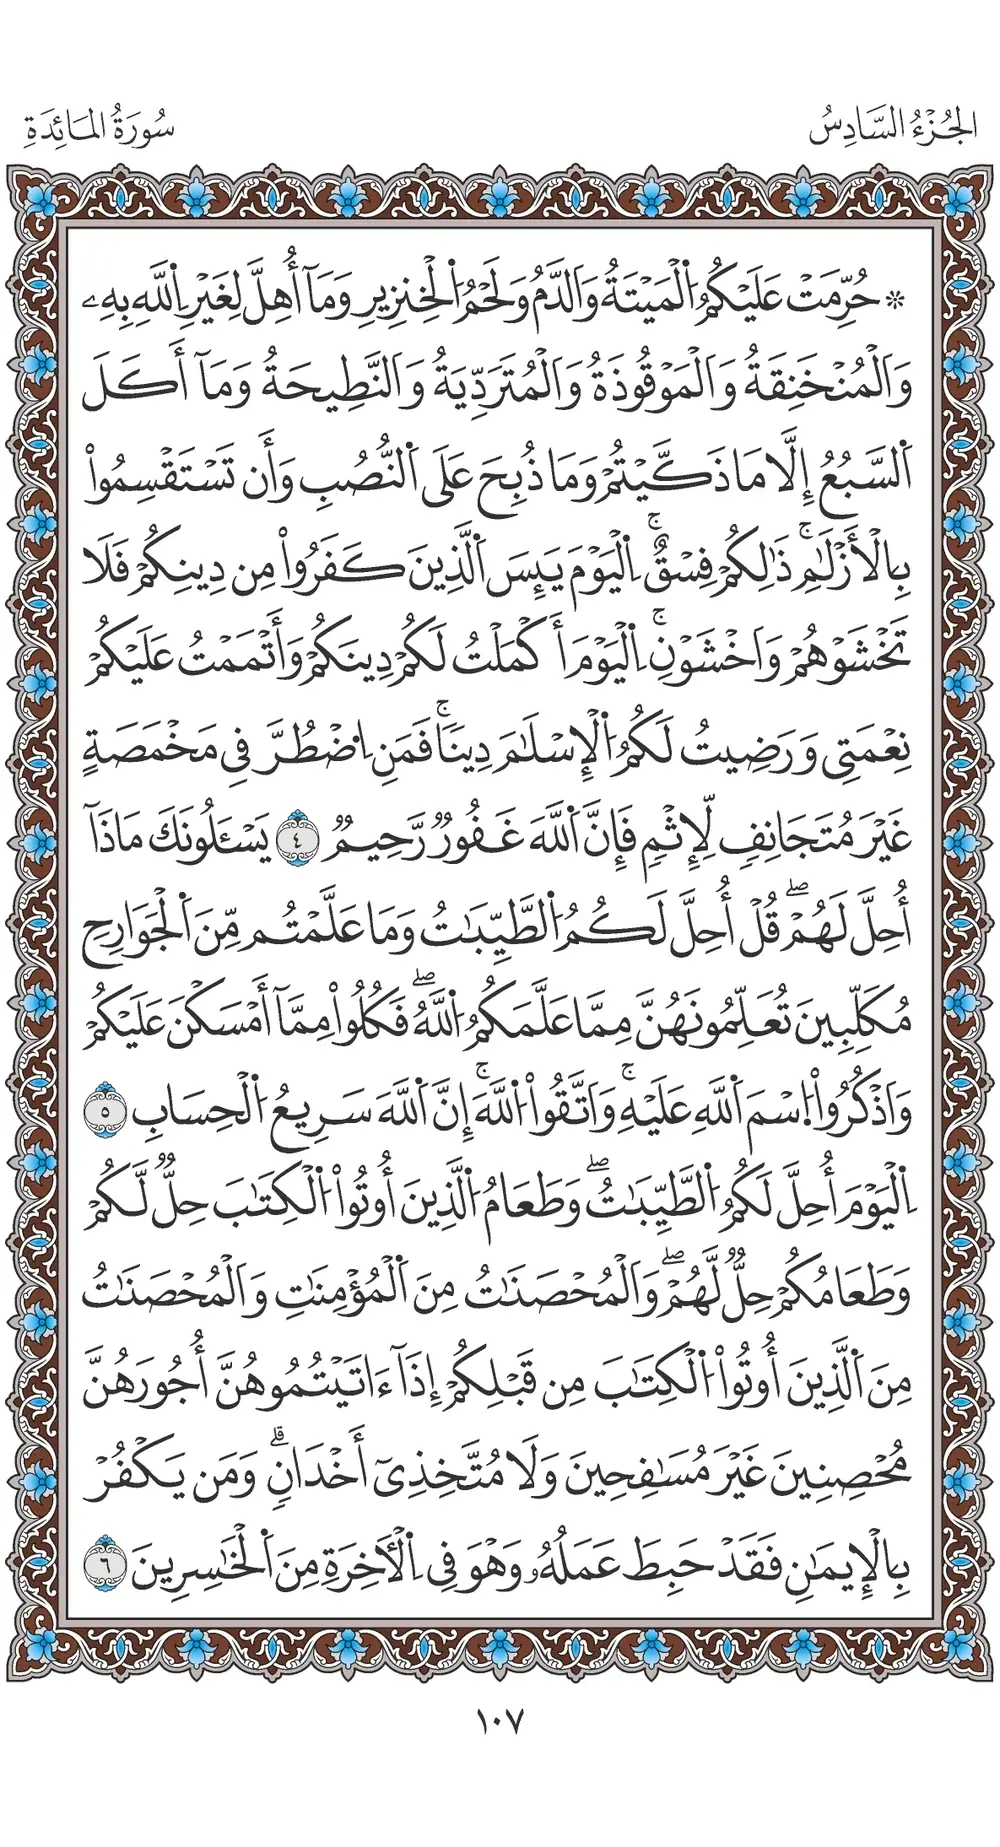 الجُزْءُ السَّادِسُ
سُورَةُ المَائِدَةِ
* حُرِّمَتْ عَلَيْكُمُ اُ۬لْمَيْتَةُ وَالدَّمُ وَلَحْمُ اُ۬لْخِنزِيرِ وَمَآ أُهِلَّ لِغَيْرِ اِ۬للَّهِ بِهِۦ
وَالْمُنْخَنِقَةُ وَالْمَوْقُوذَةُ وَالْمُتَرَدِّيَةُ وَالنَّطِيحَةُ وَمَآ أَكَلَ
اَ۬لسَّبُعُ إِلَّا مَا ذَكَّيْتُمْ وَمَا ذُبِحَ عَلَى اَ۬لنُّصُبِ وَأَن تَسْتَقْسِمُواْ
بِالْأَزْلَٰمِۚ ذَٰلِكُمْ فِسْقٌۚ اِ۬لْيَوْمَ يَئِسَ اَ۬لَّذِينَ كَفَرُواْ مِن دِينِكُمْ فَلَا
تَخْشَوْهُمْ وَاخْشَوْنِۚ اِ۬لْيَوْمَ أَكْمَلْتُ لَكُمْ دِينَكُمْ وَأَتْمَمْتُ عَلَيْكُمْ
نِعْمَتِى وَرَضِيتُ لَكُمُ اُ۬لْإِسْلَٰمَ دِينٗاۚ فَمَنِ اِ۟ضْطُرَّ فِى مَخْمَصَةٍ
غَيْرَ مُتَجَانِفٖ لِّإِثْمٖ فَإِنَّ اَ۬للَّهَ غَفُورٞ رَّحِيمٞ ٤ يَسْـَٔلُونَكَ مَاذَآ
أُحِلَّ لَهُمْۖ قُلْ أُحِلَّ لَكُمُ اُ۬لطَّيِّبَٰتُ وَمَا عَلَّمْتُم مِّنَ اَ۬لْجَوَارِحِ
مُكَلِّبِينَ تُعَلِّمُونَهُنَّ مِمَّا عَلَّمَكُمُ اُ۬للَّهُۖ فَكُلُواْ مِمَّآ أَمْسَكْنَ عَلَيْكُمْ
وَاذْكُرُواْ اُ۪سْمَ اَ۬للَّهِ عَلَيْهِۚ وَاتَّقُواْ اُ۬للَّهَۚ إِنَّ اَ۬للَّهَ سَرِيعُ اُ۬لْحِسَابِ ٥
اِ۬لْيَوْمَ أُحِلَّ لَكُمُ اُ۬لطَّيِّبَٰتُۖ وَطَعَامُ اُ۬لَّذِينَ أُوتُواْ اُ۬لْكِتَٰبَ حِلّٞ لَّكُمْ
وَطَعَامُكُمْ حِلّٞ لَّهُمْۖ وَالْمُحْصَنَٰتُ مِنَ اَ۬لْمُؤْمِنَٰتِ وَالْمُحْصَنَٰتُ
مِنَ اَ۬لَّذِينَ أُوتُواْ اُ۬لْكِتَٰبَ مِن قَبْلِكُمْ إِذَآ ءَاتَيْتُمُوهُنَّ أُجُورَهُنَّ
مُحْصِنِينَ غَيْرَ مُسَٰفِحِينَ وَلَا مُتَّخِذِىٓ أَخْدَانٖۗ وَمَن يَكْفُرْ
بِالْإِيمَٰنِ فَقَدْ حَبِطَ عَمَلُهُۥ وَهْوَ فِى اِ۬لْأٓخِرَةِ مِنَ اَ۬لْخَٰسِرِينَ ٦
١٠٧